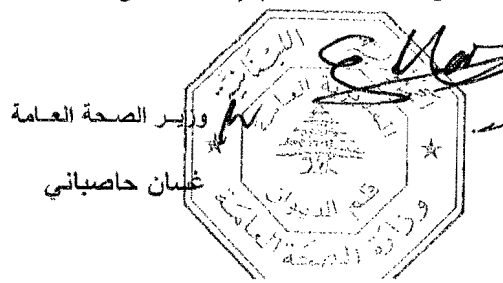 وزير الصحة العامة
غسان حاصباني
اللبنانية
قلم الديوان
وزارة الصحة العامة